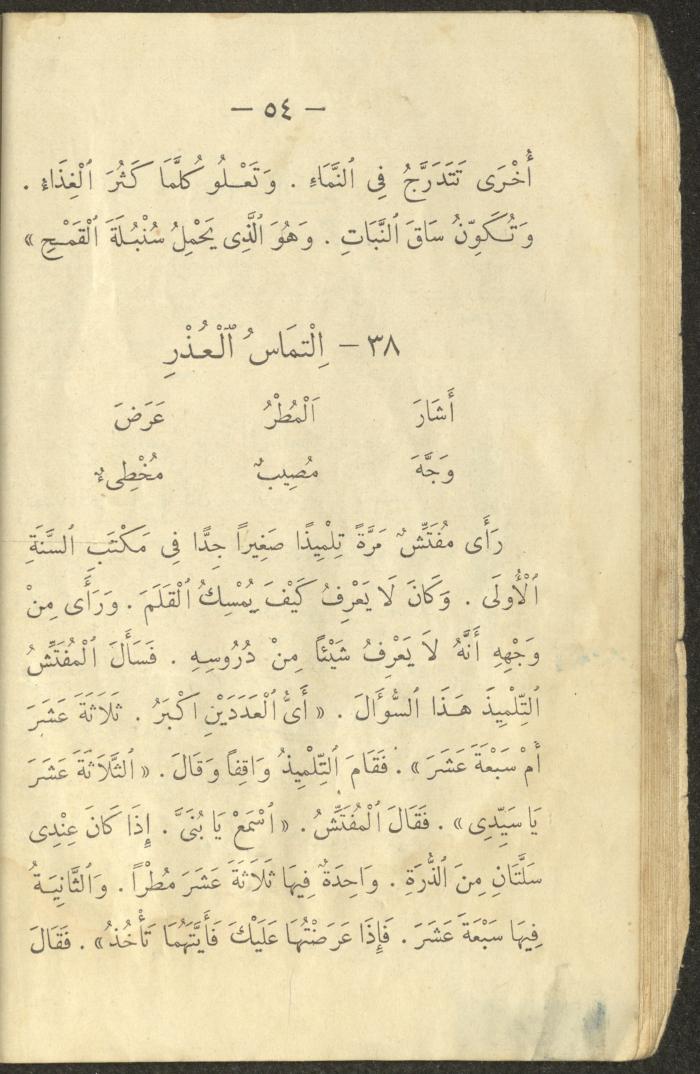 — ٥٤ —
أُخْرَى تَتَدَرَّجُ فِي ٱلنَّمَاءِ . وَتَعْلُو كُلَّمَا كَثُرَ ٱلْغِذَاءُ .
وَتُكَوِّنُ سَاقَ ٱلنَّبَاتِ . وَهُوَ ٱلَّذِى يَحْمِلُ سُنْبُلَةَ ٱلْقَمْحِ »
٣٨ — اِلْتِمَاسُ ٱلْعُذْرِ
أَشَارَ اَلْمُطْرُ عَرَضَ
وَجَّهَ مُصِيبٌ مُخْطِىءٌ
رَأَى مُفَتِّشٌ مَرَّةً تِلْمِيذًا صَغِيراً جِدًّا فِي مَكْتَبِ ٱلسَّنَةِ
ٱلْأُولَى . وَكَانَ لَا يَعْرِفُ كَيْفَ يُمْسِكُ ٱلْقَلَمَ . وَرَأَى مِنْ
وَجْهِهِ أَنَّهُ لاَ يَعْرِفُ شَيْئاً مِنْ دُرُوسِهِ . فَسَأَلَ ٱلْمُفَتِّشُ
ٱلتِّلْمِيذَ هَذَا ٱلسُّؤَالَ . « أَىُّ ٱلْعَدَدَيْنِ اكْبَرُ . ثَلَاثَةَ عَشَرَ
أَمْ سَبْعَةَ عَشَرَ » . فَقَامَ ٱلتِّلْمِيذُ وَاقِفاً وَقَالَ . « ٱلثَّلَاثَةَ عَشَرَ
يَا سَيِّدِى » . فَقَالَ ٱلْمُفَتِّشُ . « ٱسْمَعْ يَا بُنَىَّ . إِذَا كَانَ عِنْدِى
سَلَّتَانِ مِنَ ٱلذُّرَةِ . وَاحِدَةٌ فِيهَا ثَلَاثَةَ عَشَرَ مُطْرًا . وَٱلثَّانِيَةُ
فِيهَا سَبْعَةَ عَشَرَ . فَإِذَا عَرَضْتُهَا عَلَيْكَ فَأَيَّتَهُمَا تَأْخُذُ » . فَقَالَ